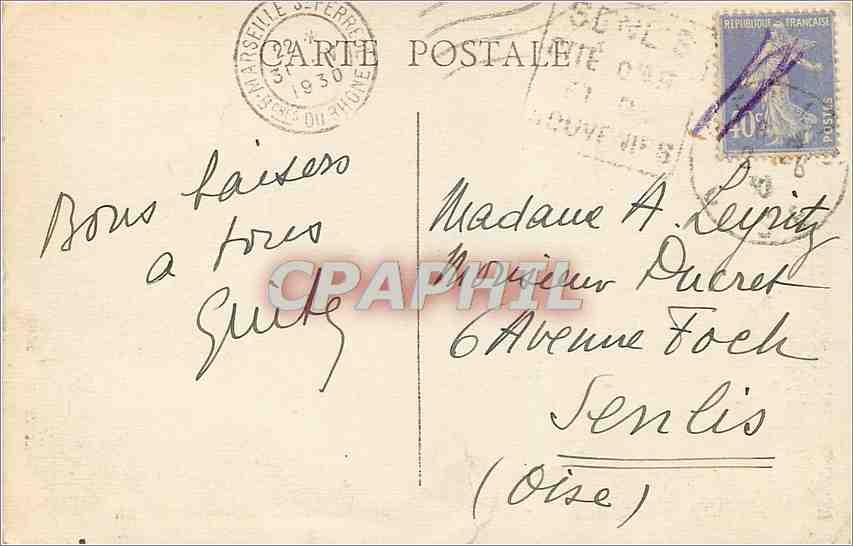 MARSEILLE St FERREOL
22 *
31
1930
Bches DU RHÔNE
CARTE POSTALE
SENLIS
RÉPUBLIQUE FRANÇAISE
40c
POSTES
Bons baisers
a tous
Guite
Madame A. Leyritz
Monsieur Ducret
6 Avenue Foch
Senlis
(Oise)
CPAPHIL